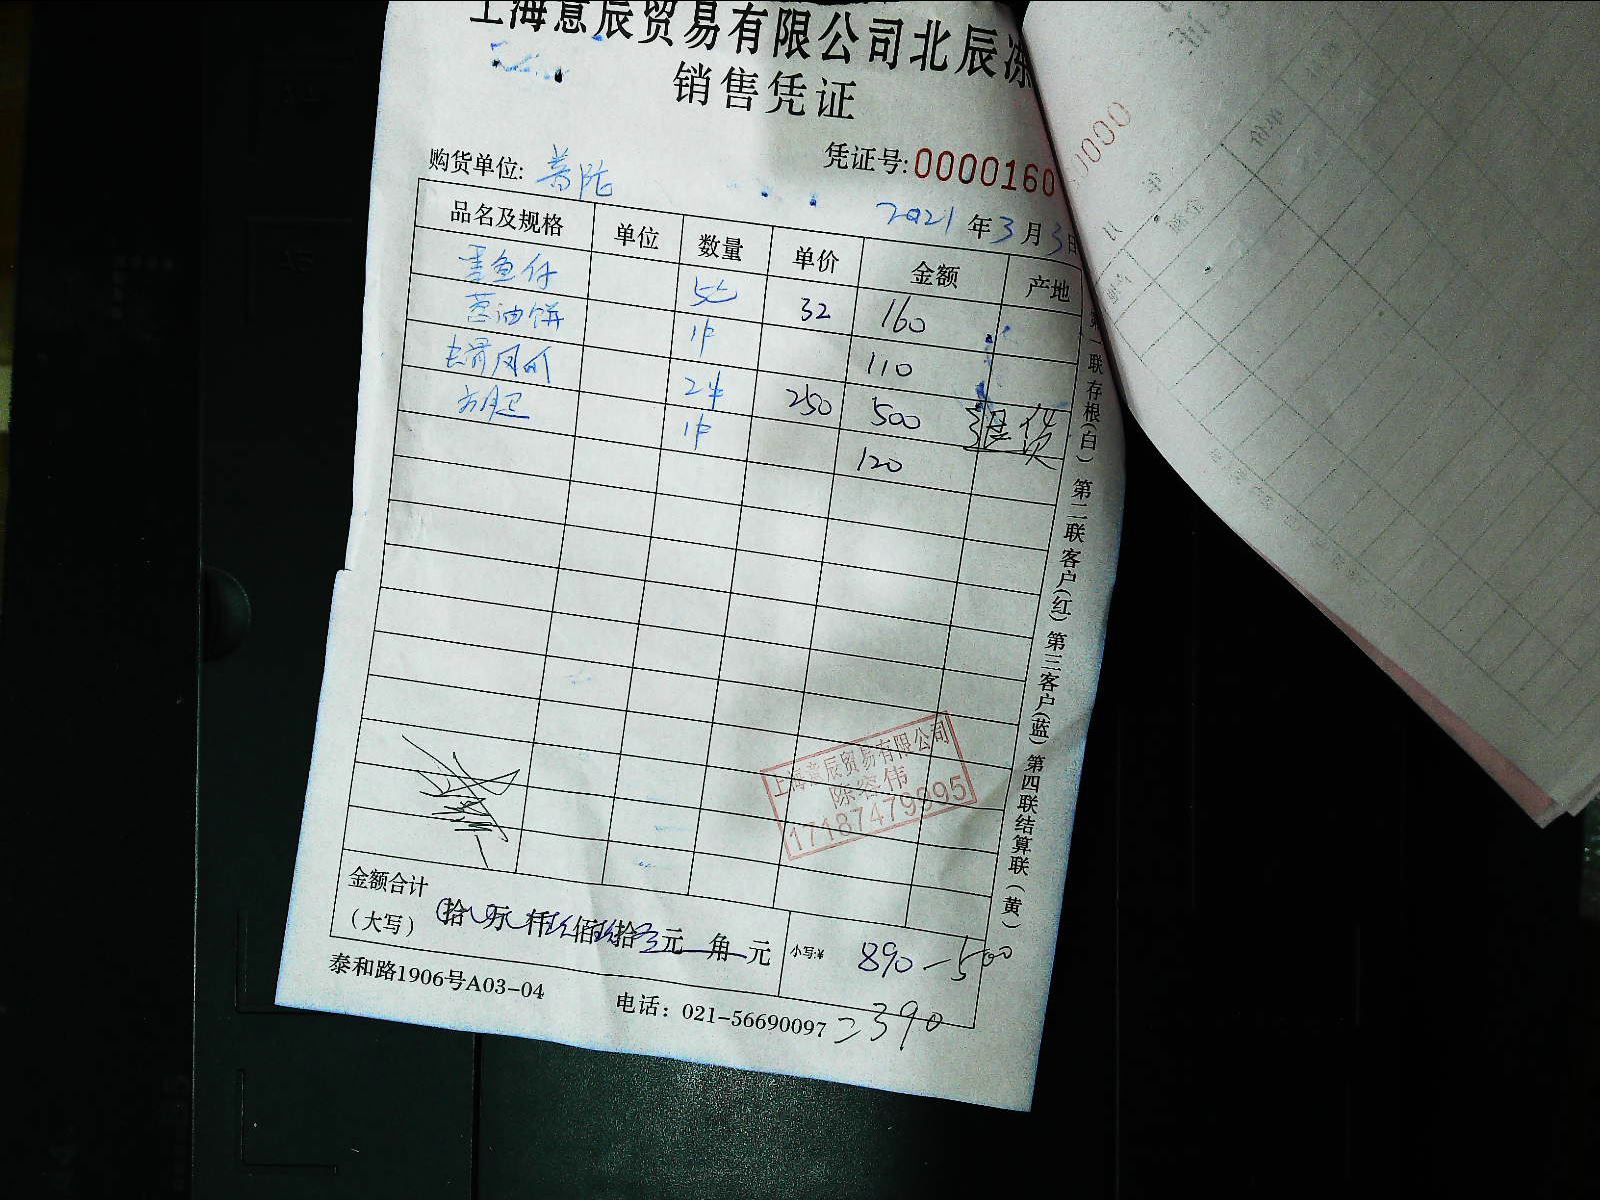 上海意辰贸易有限公司北辰冻
销售凭证
购货单位: 普陀
凭证号: 0000160
2021 年 3 月 3 日
品名及规格 单位 数量 单价 金额 产地
鱼仔 32 160
葱油饼 1件 110
去骨凤爪 2件 250 500 退货
方腿 1件 120
第一联存根(白) 第二联客户(红) 第三客户(蓝) 第四联结算联(黄)
上海意辰贸易有限公司
陈容伟
17187479995
金额合计
(大写) 拾 万 仟 佰 拾 元 角 元 小写:¥ 890-500
=390
泰和路1906号A03-04 电话: 021-56690097